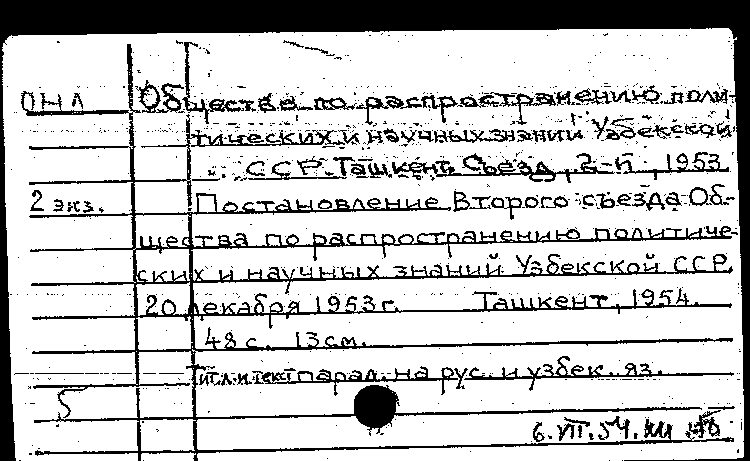 ОНЛ Общество по распространению поли-
тических и научных знаний Узбекской
ССР. Ташкент. Съезд, 2-й, 1953.
2 экз. Постановление Второго съезда Об-
щества по распространению политиче-
ских и научных знаний Узбекской ССР.
20 декабря 1953 г. Ташкент, 1954.
48 с. 13 см.
Титл. и текст парал. на рус. и узбек. яз.
5
6.VII.54.